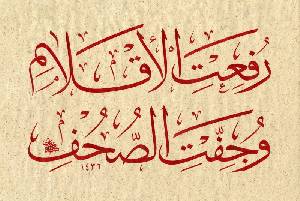 رُفِعَتِ الأَقْلَامُ
وَجَفَّتِ الصُّحُفُ
١٤٣٦